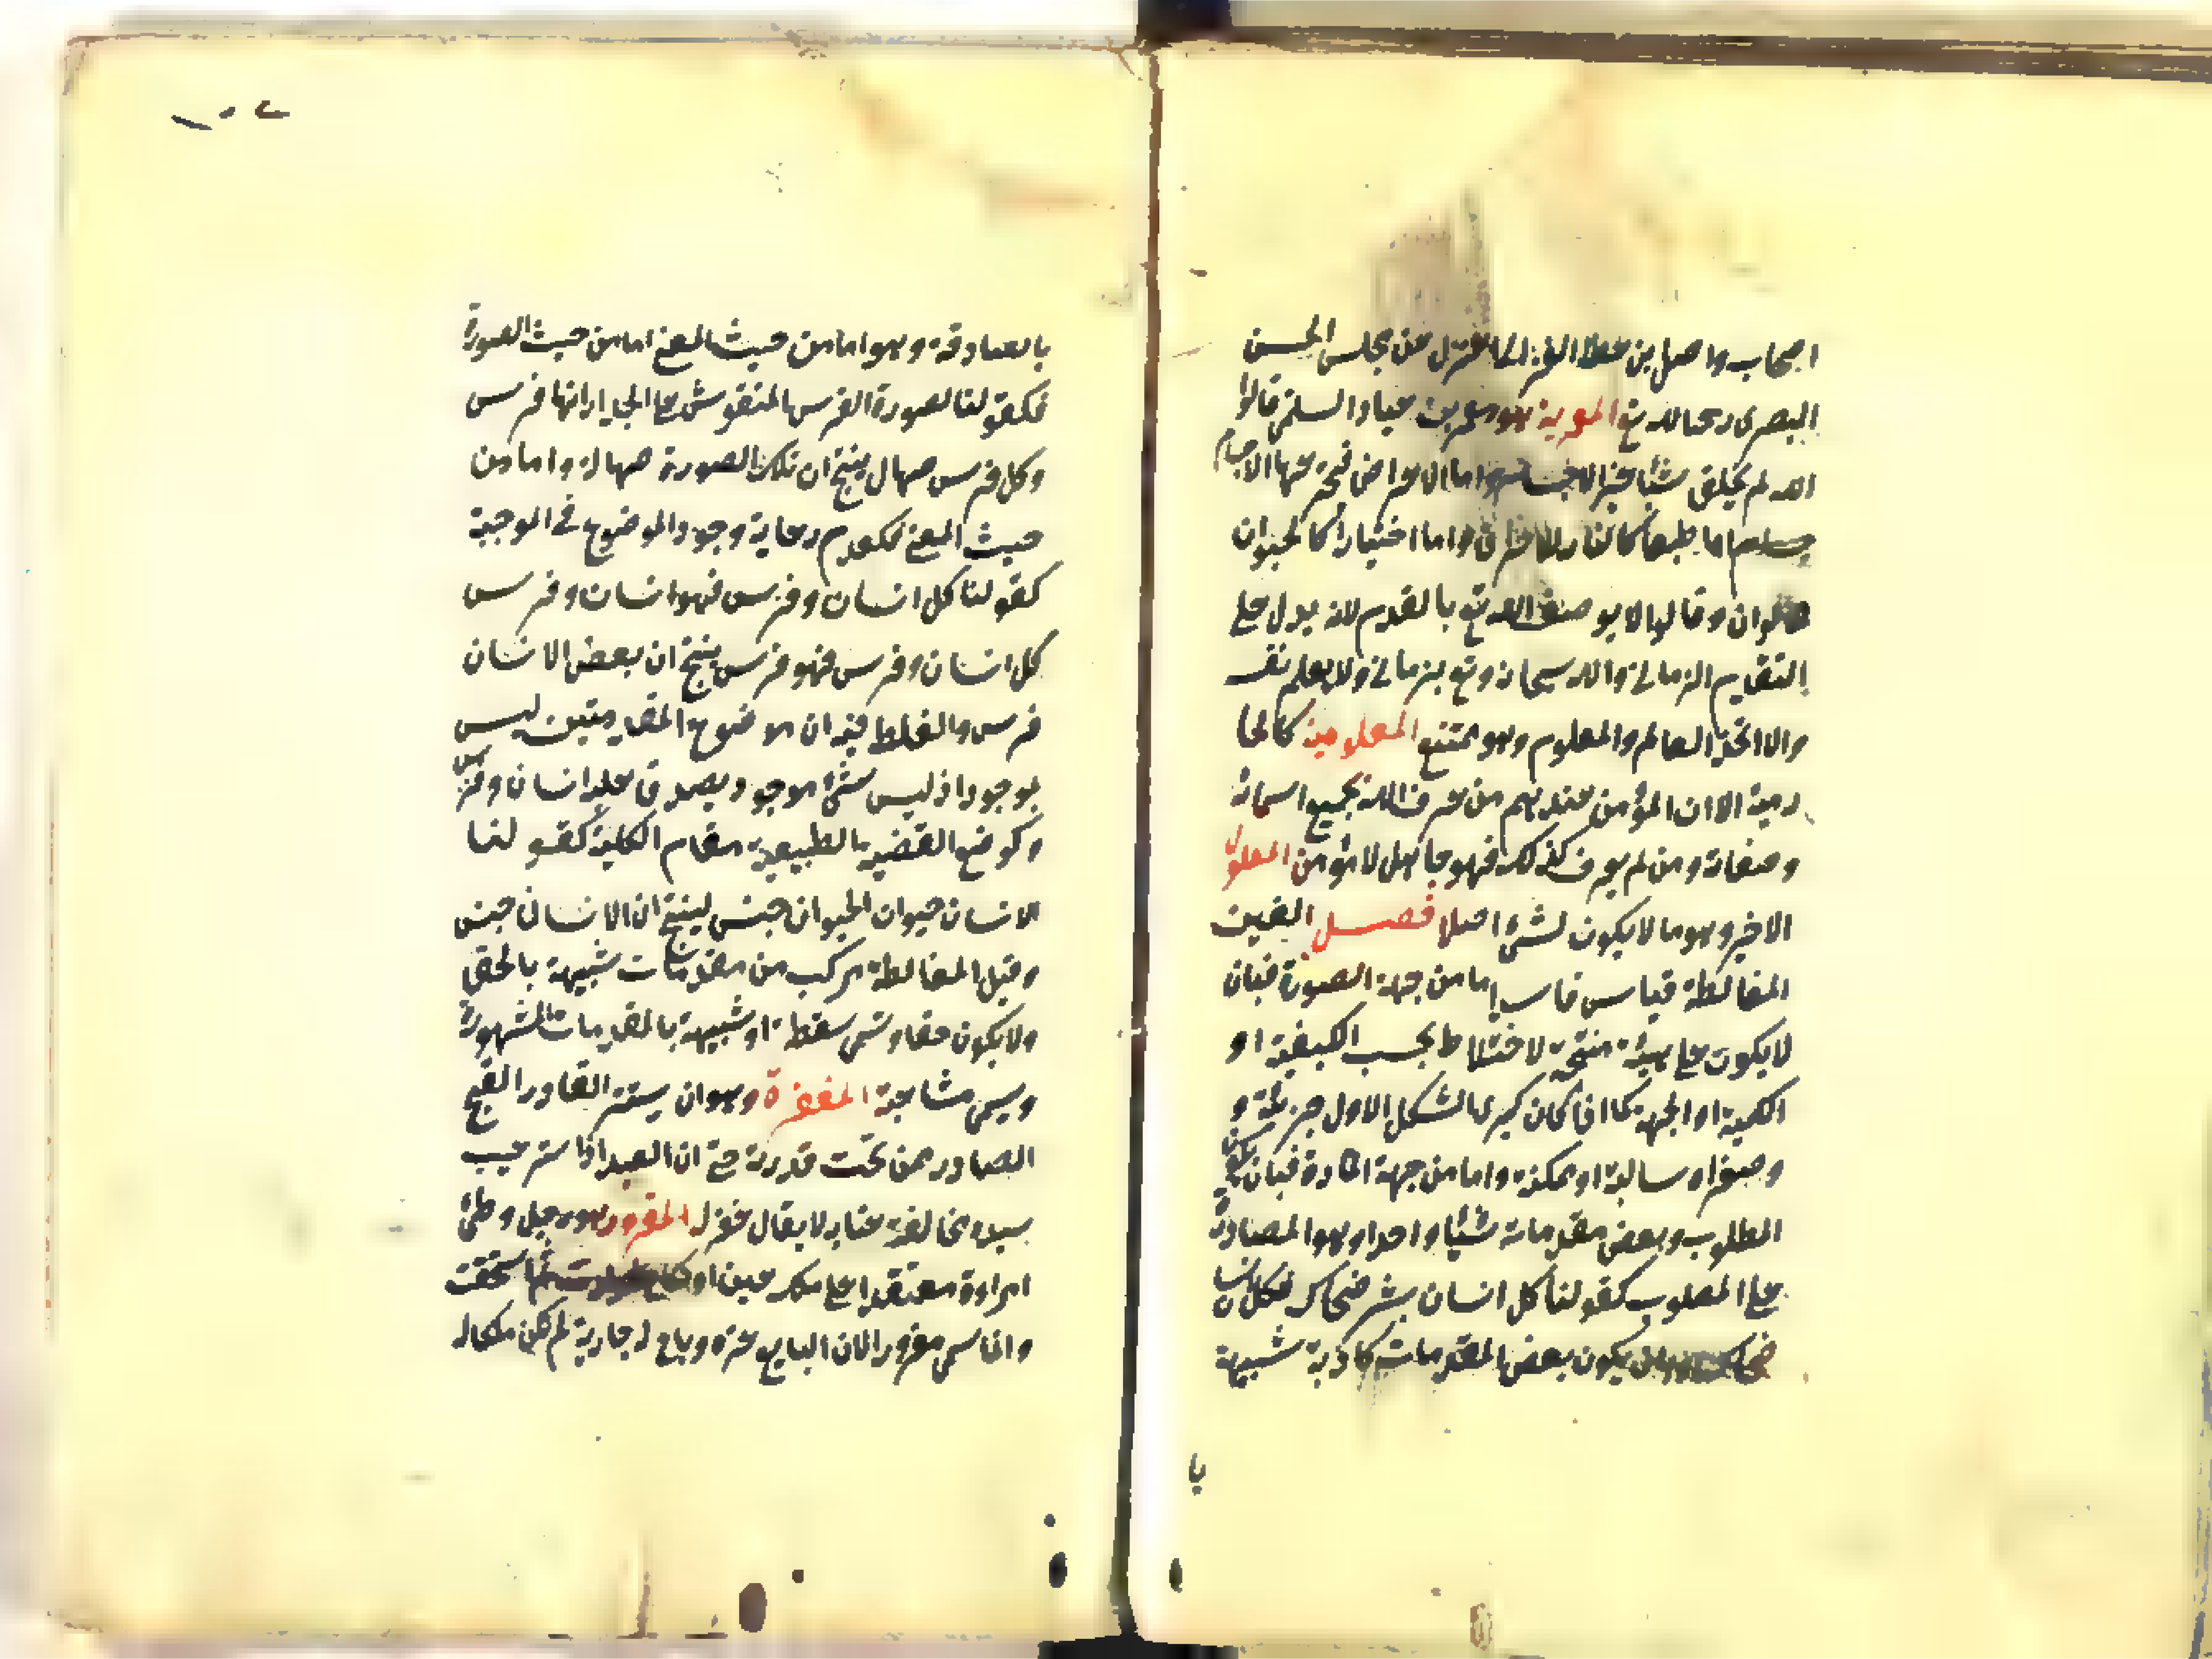 اصحاب واصل بن عطا الغزالى اعتزل عن مجلس الحسن
البصرى رحمه الله تع المعمرية هو معمر بن عباد السلمى قالوا
الله لم يخلق شيئا غير الاجسام واما الاعراض فتخترعها الاجسام
اما طبعا كالنار للاحراق واما اختيارا كالحيوان
للالوان وقالوا لا يوصف الله تع بالقدم لانه يدل على
التقادم الزمانى والله سبحانه وتع بزمانى ولا يعلم نفسه
والا اتحد العالم والمعلوم وهو ممتنع المعلومية كالحا
زمية الا ان المؤمن عندهم من عرف الله بجميع اسمائه
وصفاته ومن لم يعرف كذلك فهو جاهل لا مؤمن المعلول
الاخير وهو ما لا يكون لشئ اصلا فصل الغين
المغالطة قياس فاسد اما من جهة الصورة فبان
لا يكون على هيئة منتجة لاختلاط بحسب الكيفية او
الكمية او الجهة كما اذا كان كبرى الشكل الاول جزئية و
وصغراه سالبة او ممكنة واما من جهة المادة فبان يكون
المطلوب وبعض مقدماته شيئا واحدا وهو المصادرة
على المطلوب كقولنا كل انسان بشر ضحاك فكل انسان
ضحاك وبان يكون بعض المقدمات كاذبة شبيهة
بالصادقة وهو اما من حيث المعنى اما من حيث الصورة
فكقولنا لصورة الفرس المنقوش على الجدار انها فرس
وكل فرس صهال ينتج ان تلك الصورة صهالة واما من
حيث المعنى فكعدم رعاية وجود الموضوع فى الموجبة
كقولنا كل انسان وفرس فهو انسان وفرس
كل انسان وفرس فهو فرس ينتج ان بعض الانسان
فرس والغلط فيه ان موضوع المقدمتين ليس
بموجود اذ ليس شئ موجود يصدق عليه انسان وفرس
وكوضع القضية الطبيعية مقام الكلية كقولنا
الانسان حيوان الحيوان جنس لينتج ان الانسان جنس
وقيل المغالطة مركب من مقدمات شبيهة بالحق
ولا يكون حقا وتسمى سفسطة او شبيهة بالمقدمات المشهورة
ويسمى مشاغبة المغفرة وهو ان يستر القادر القبيح
الصادر ممن تحت قدرته حتى ان العبد اذا ستر عيب
سيده مخافة عتابه لا يقال غفر له المغرور هو رجل وطئ
امراءة معتقدا على ملك يمين او نكاح ثم استحقت
وانما سمى مغرورا لان البايع غره وباع له جارية لم تكن ملكا له